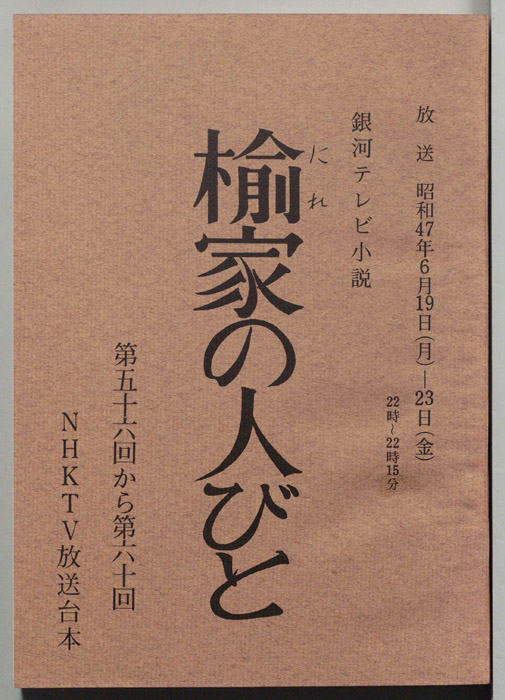 放送 昭和47年6月19日(月)―23日(金)
22時~22時15分
銀河テレビ小説
にれ
楡家の人びと
第五十六回から第六十回
NHKTV放送台本